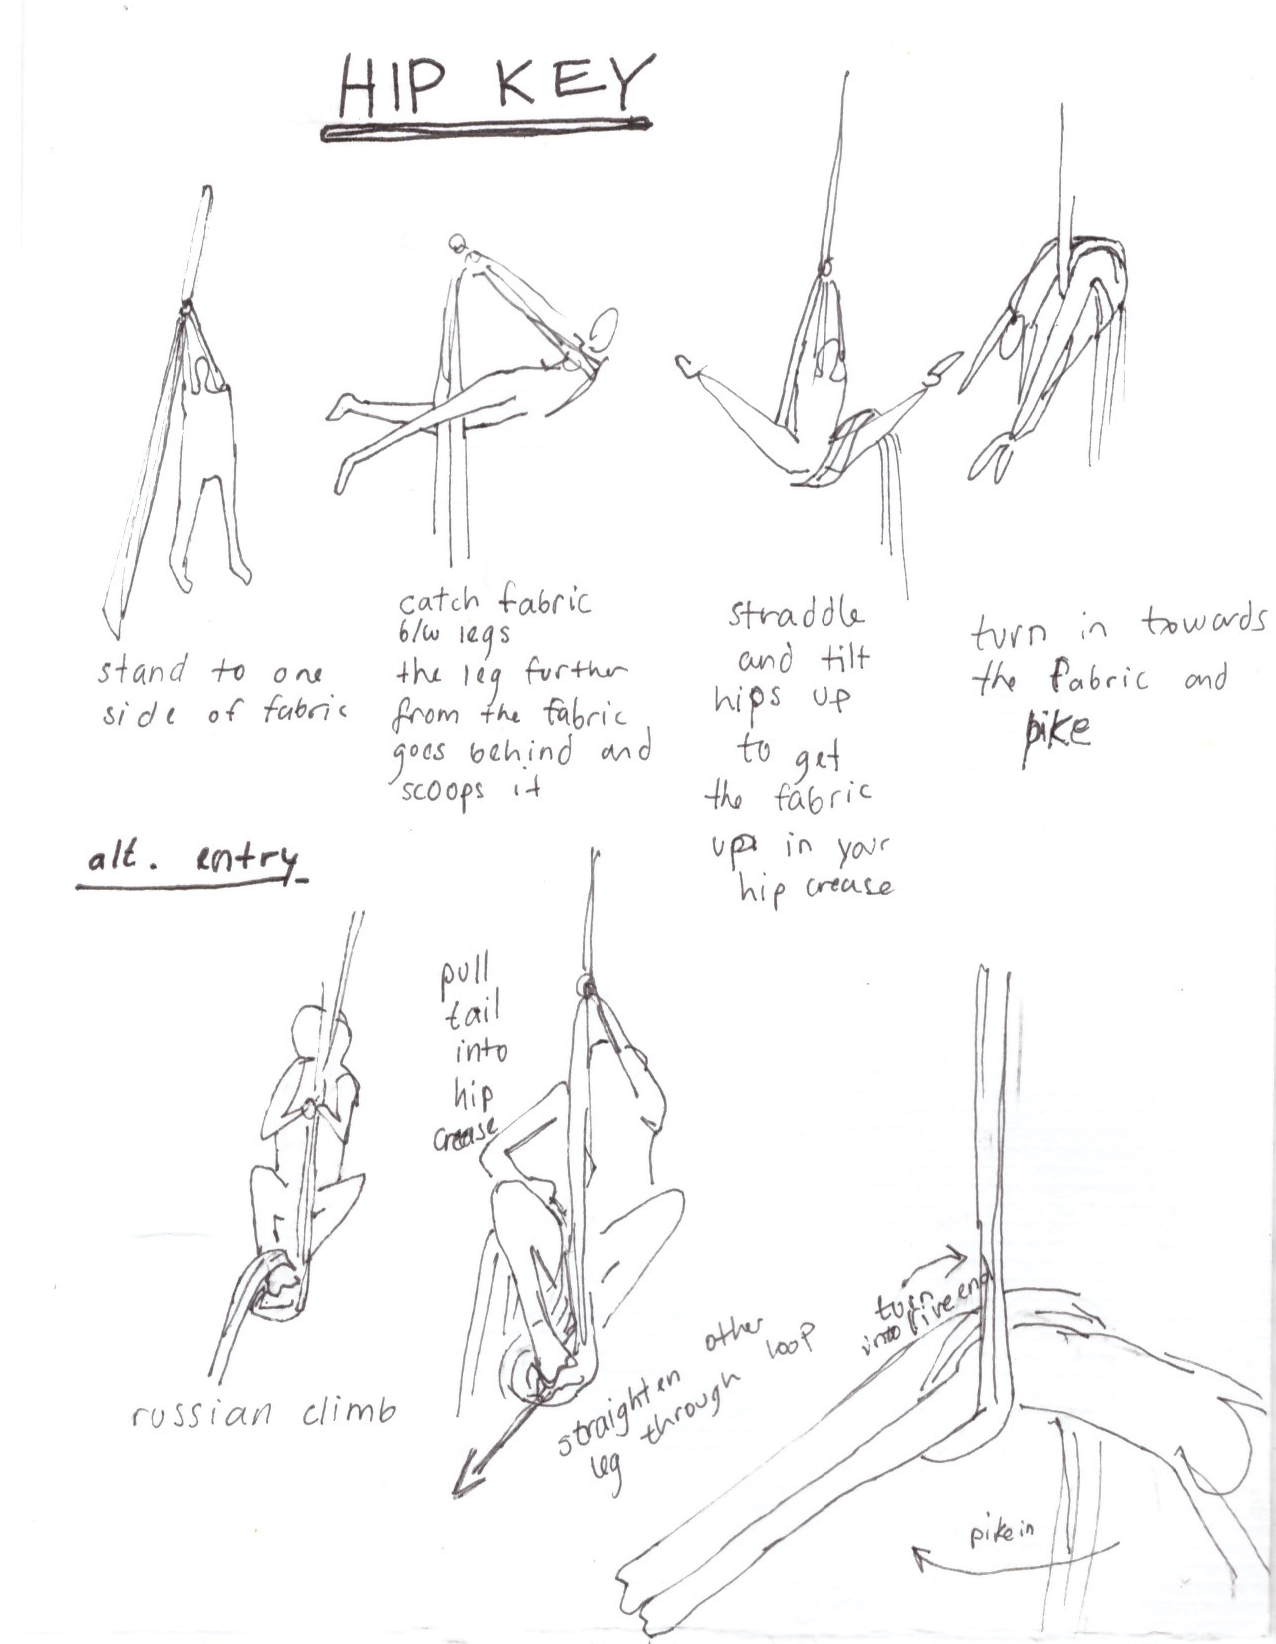 HIP KEY
stand to one
side of fabric
catch fabric
b/w legs
the leg further
from the fabric
goes behind and
scoops it
straddle
and tilt
hips up
to get
the fabric
up in your
hip crease
turn in towards
the fabric and
pike
alt. entry
russian climb
pull
tail
into
hip
crease
straighten other
leg through loop
turn
into live end
pike in